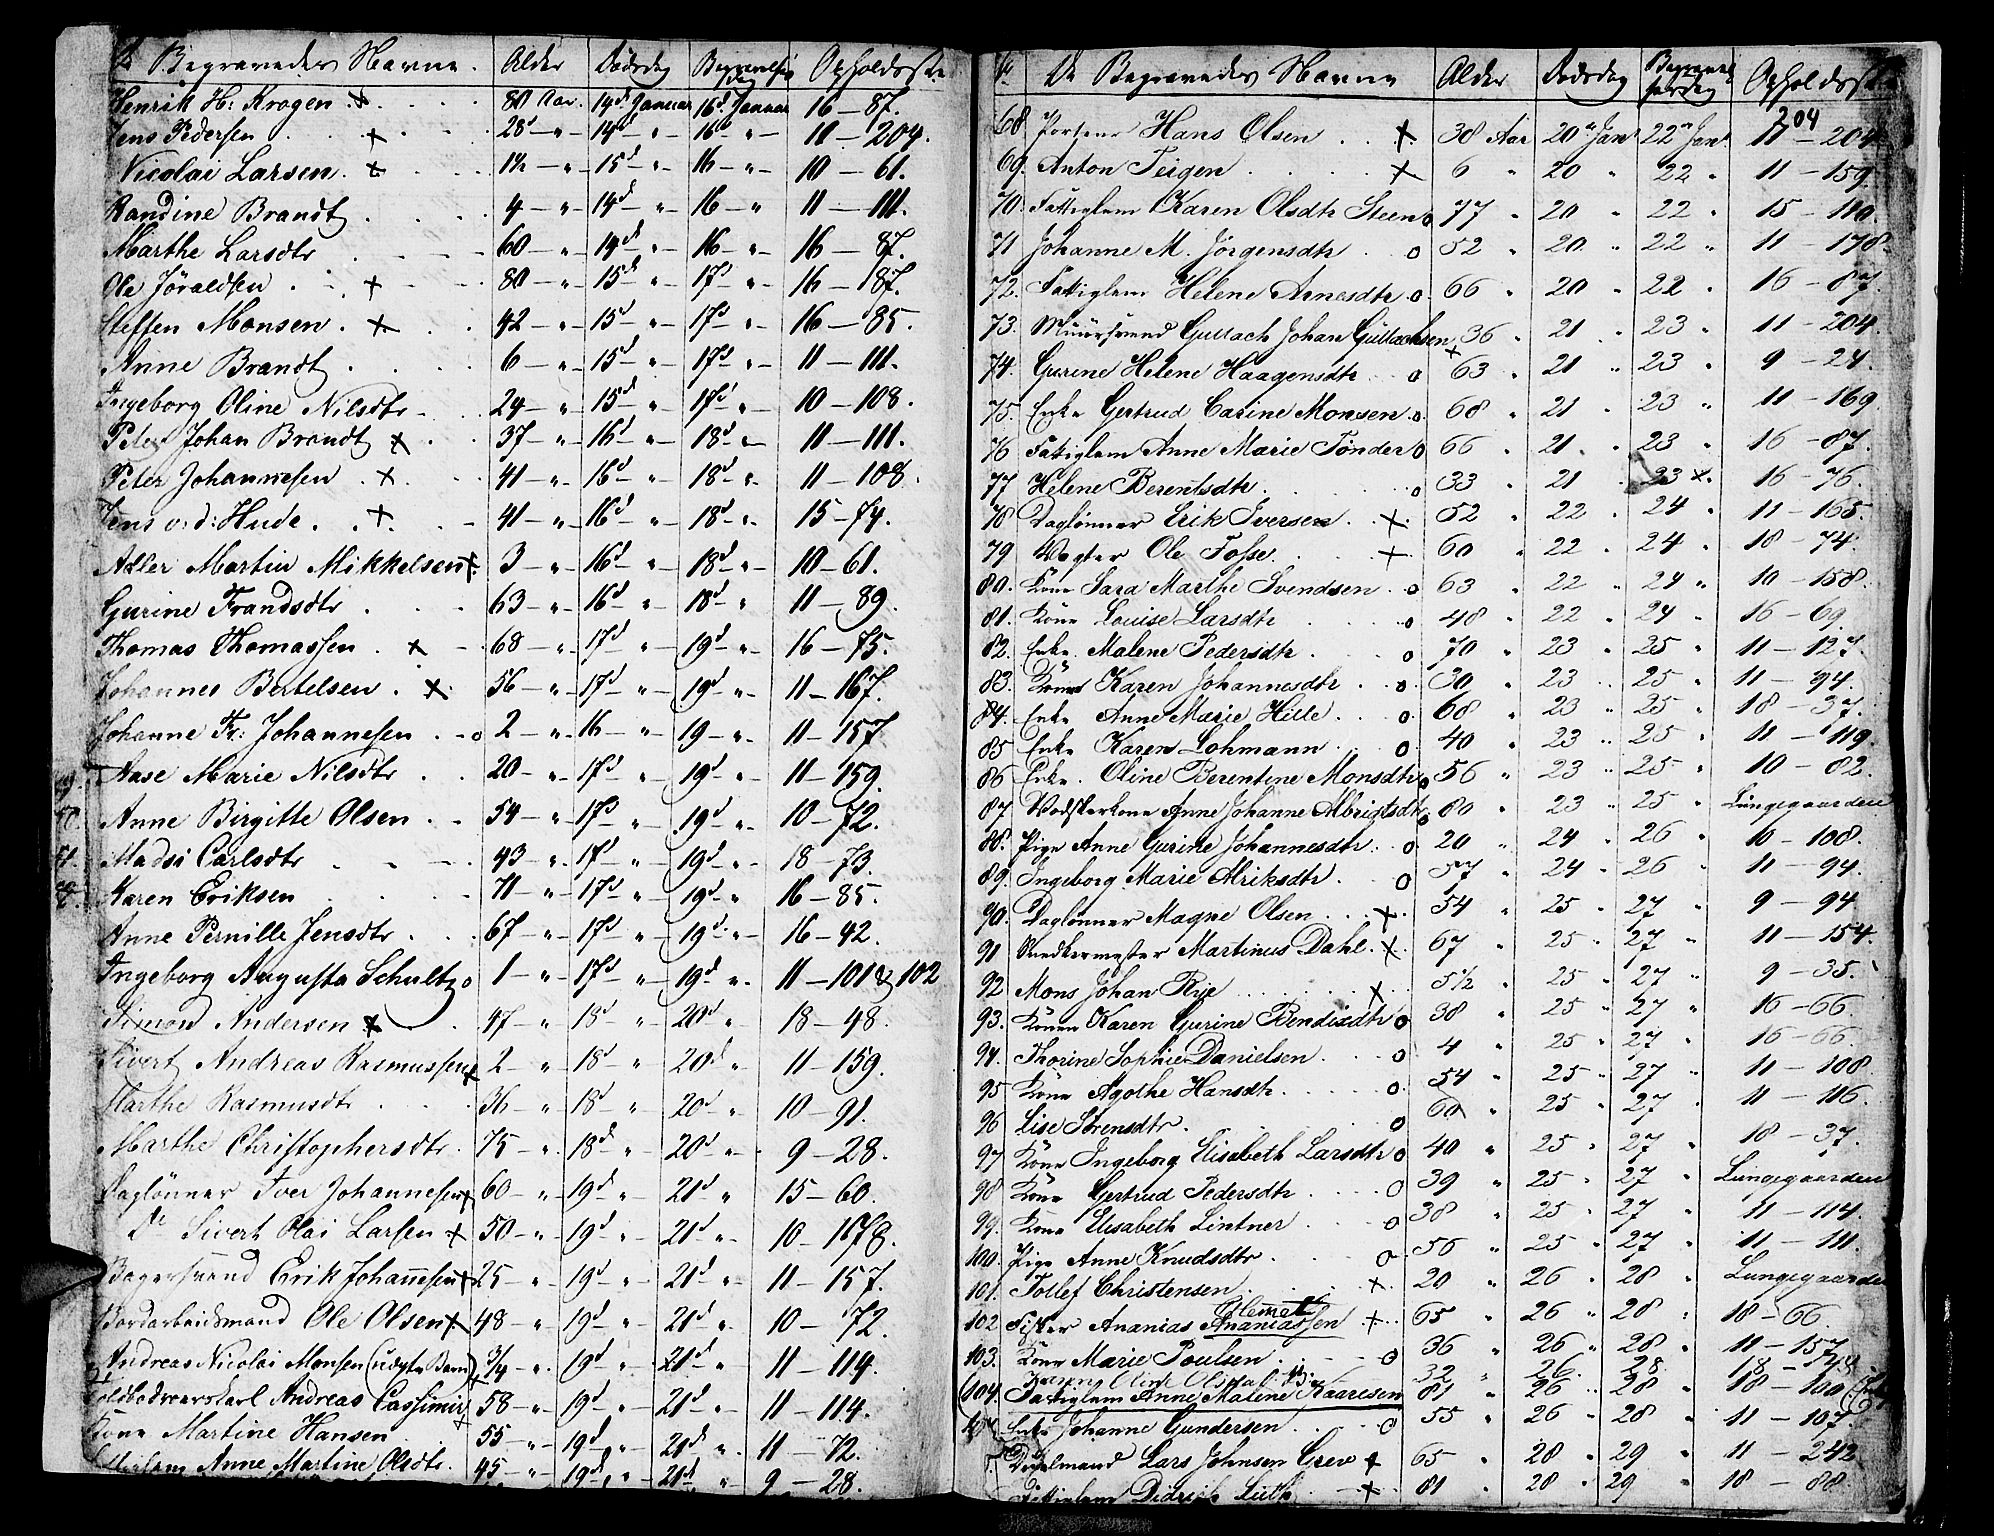 De Begravedes Navne. Alder Dødsdag Begravelsesdag Opholdsste
Henrik H: Krogen . x 80 Aar. 14d Januar 16d Januar 16 – 87.
Jens Pedersen x 28 – „ – 14d – „ – 16d – „ – 11 – 204.
Nicolai Larsen . x 1½ – „ – 15d – „ – 16 – „ – 10 – 61.
Randine Brandt 4 – „ – 14d – „ – 16 – „ 11 – 111.
Marthe Larsdtr 60 – „ – 14d – „ – 16 – „ – 16 – 87.
Ole Jöraldsen x 80 – „ – 15d – „ – 17d – „ – 16 – 87.
Steffen Monsen . x 42 – „ – 15d – „ – 17d – „ – 16 – 85.
Anne Brandt 6 – „ – 15d – „ – 17d – „ – 11 – 111.
Ingeborg Oline Nilsdtr 24 – „ – 15d – „ – 17d – „ – 10 – 108.
Peter Johan Brandt x 37 – „ – 16d – „ – 18d – „ – 11 – 111.
Peter Johannesen . x 41 – „ – 16d – „ – 18d – „ – 11 – 108.
Jens v:d: Hude . x 41 – „ – 16d – „ – 18d – „ – 15 – 74.
Adler Martin Mikkelsen x 3 – „ – 16d – „ – 18d – „ – 10 – 61.
Gurine Frandsdtr 63 – „ – 16d – „ – 18d – „ 11 – 89.
Thomas Thomassen . x 68 – „ – 17d – „ – 19d – „ – 16 – 75.
Johannes Bertelsen . x 56 – „ – 17d – „ – 19d – „ – 11 – 167.
Johanne Fr: Johannesen . o 2 – „ – 16 – „ – 19 – „ – 11 – 157
49. Aase Marie Nilsdtr 20 – „ – 17d – „ – 19d – „ – 11 – 159.
50. Anne Birgitte Olsen 54 – „ – 17d – „ – 19d – „ – 10 – 72.
51. Madsi Carlsdtr 43 – „ – 17d – „ – 19d – „ – 18 – 73.
Karen Eriksen 71 – „ – 17d – „ – 19d – „ – 16 – 85.
Anne Pernille Jensdtr 67 – „ – 17d – „ – 19d – „ – 16 – 42.
Ingeborg Augusta Schultz o 1 – „ – 17d – „ – 19d – „ – 11 – 101 & 102
Simon Andersen x 47 – „ – 18d – „ – 20d – „ 18 – 48.
Sivert Andreas Rasmussen x 2 – „ – 18d – „ – 20d – „ 11 – 159.
Marthe Rasmusdtr 36 – „ – 18d – „ – 20d – „ 10 – 91.
Marthe Christophersdtr. 75 – „ – 18d – „ – 20d – „ – 9 – 28.
Daglönner Iver Johannesen x 60 – „ – 19d – „ – 21d – „ 15 – 60.
Do Sivert Olai Larsen x 50 – „ – 19d – „ – 21d – „ – 10 – 1678.
Bagersvend Erik Johannesen x 25 – „ – 19d – „ – 21d – „ 11 – 157.
Bordarbeidsmand Ole Olsen x 48 – „ – 19d – „ – 21d – „ 10 – 72.
Andreas Nicolai Monsen (uægte Barn) x 3/4 – „ – 19d – „ – 21d – „ 11 – 114.
Andreas Cassimir x 58 – „ – 19d – „ – 21d – „ 11 – 114.
Kone Martine Hansen 55 – „ – 19d – „ – 21d – „ 11 – 72.
Anne Martine Olsdtr. 45 – „ – 19d – „ – 21d – „ 9 – 28.
De Begravedes Navne Alder Dødsdag Opholdsste
204
68 Hans Olsen x 38 Aar 20de Jan 22de Jan 11 – 204
69. Anton Teigen x 6 „ 20 „ 22 „ 11 – 159.
70. Fattiglem Karen Olsdtr Steen o 77 „ 20 „ 22 „ 15 – 110.
71 Johanne M. Jörgensdtr o 52 „ 20 „ 22 „ 11 – 178.
72. Fattiglem Helene Arnesdtr o 66 „ 20 „ 22 „ 16 – 87.
73. Muursvend Gullach Johan Gullachsen x 36 „ 21 „ 23 „ 11 – 204.
74. Gurine Helene Haagensdtr o 63 „ 21 „ 23 „ 9 – 24.
75. Enke Gertrud Carine Monsen o 68 „ 21 „ 23 „ 11 – 169.
76 Fattiglem Anne Marie Tönder o 66 „ 21 „ 23 „ 16 – 87.
77 Helene Berentsdtr. o 33 „ 21 „ 23 x. 16 – 76.
78 Daglönner Erik Iversen . x 52 „ 22 „ 24 „ 11 – 165.
79 Vægter Ole Fosse . x 60 „ 22 „ 24 „ 18 – 74.
80. Kone Sara Marthe Svendsen o 63 „ 22 „ 24 „ 10 – 158.
81. Kone Louise Larsdtr o 48 „ 22 „ 24 „ 16 – 69.
82. Enke Malene Pedersdtr o 70 „ 23 „ 25 „ 11 – 127.
83. Kone Karen Johannesdtr o 30 „ 23 „ 25 „ 11 – 94.
84. Enke Anne Marie Hille o 68 „ 23 „ 25 „ 18 – 37.
85 Enke Karen Lohmann o 40 „ 23 „ 25 „ 11 – 119.
86 Enke Oline Berentine Monsdtr o 56 „ 23 „ 25 „ 10 – 82.
87 Anne Johanne Albrigtsdtr o 80 „ 23 „ 25 „ Lungegaarden
88. Pige Anne Gurine Johannesdtr. o 20 „ 24 „ 26 „ 10 – 108.
89. Ingeborg Marie Alriksdtr. o 57 „ 24 „ 26 „ 11 – 94.
90. Daglönner Magne Olsen x 54 „ 25 „ 27 „ 9 – 94
91 Snedkermester Martinus Dahl x 67 „ 25 „ 27 „ 11 – 154.
92 Mons Johan Rye x 5½ „ 25 „ 27 „ 9 – 35.
93. Konen Karen Gurine Bendixdtr o 38 „ 25 „ 27 „ 16 – 66.
94. Thorine Sophie Danielsen o 4 „ 25 „ 27 „ 16 – 66.
95 Kone Agothe Hansdtr o 54 „ 25 „ 27 „ 11 – 108.
96 Lise Sörensdtr. o 60 „ 25 „ 27 „ 11 – 116.
97 Kone Ingeborg Elisabeth Larsdtr o 40 „ 25 „ 27 „ 18 – 37.
98 Kone Gertrud Pedersdtr o 39 „ 25 „ 27 „ Lungegaarden
99. Kone Elisabeth Lintner o 38 „ 25 „ 27 „ 11 – 114.
100. Pige Anne Knudsdtr o 56 „ 25 „ 27 „ 11 – 111.
101. Tollef Christensen. x 20 „ 26 „ 28 „ Lungegaarden
102 Fisker Ananias Ananiassen x 65 „ 26 „ 28 „ 18 – 66.
103. Kone Marie Poulsen o 36 „ 26 „ 28 „ 11 – 157
32 „ 26. 28 18
104. Fattiglem Anne Malene Kaaresen 81 „ 26 „ 28 „ 18 – 100
Enke Johanne Gundersen o 55 „ 26 „ 28 „ 11 – 107.
Lars Johnsen Grev x 65 „ 28 „ 29 „ 11 – 242
Fattiglem Didrich Lüth x 81 „ 28 „ 29 „ 18 – 88.